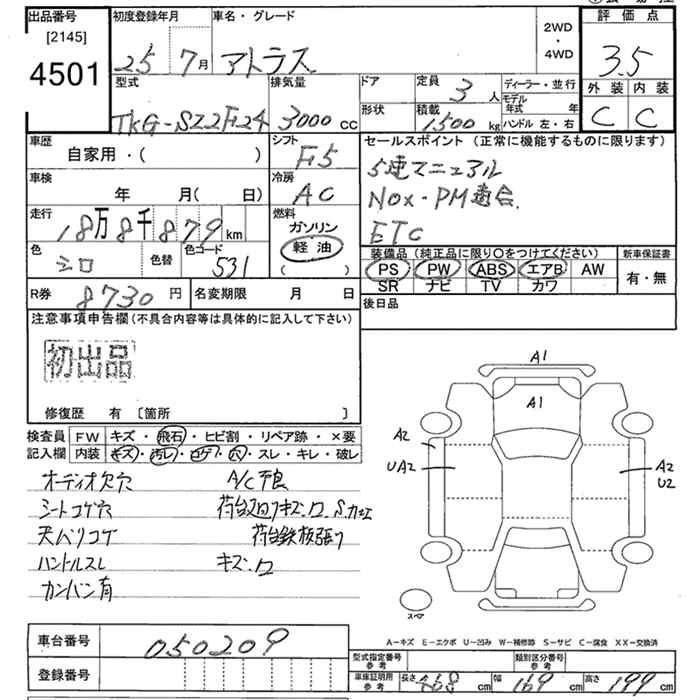 出品番号
[2145]
4501
初度登録年月
25 7月
車名・グレード
アトラス
2WD
・
4WD
評価点
3.5
外装 内装
C C
型式
TKG-SZ2F24
排気量
3000 cc
ドア
形状
定員
3人
積載
1500 kg
ディーラー・並行
モデル年式 年
ハンドル 左・右
車歴
自家用・( )
シフト
F5
車検
年 月(日)
冷房
AC
走行
18万8千879 km
燃料
ガソリン
軽油
( )
色
シロ
色替
色コード
531
セールスポイント(正常に機能するものに限ります)
5速マニュアル
NOx・PM適合.
ETC
装備品(純正品に限り○をつけてください)
PS PW ABS エアB AW
SR ナビ TV カワ
新車保証書
有・無
R券 8730円
名変期限 月 日
後日品
注意事項申告欄(不具合内容等は具体的に記入して下さい)
初出品
修復歴 有 [箇所 ]
検査員記入欄
FW キズ・飛石・ヒビ割・リペア跡・×要
内装 キズ・汚レ・コゲ・穴・スレ・キレ・破レ
オーディオ欠穴 A/C不良
シートコゲ穴 荷台廻りキズ.凹.S.カエ
天バリコゲ 荷台鉄板張り
ハンドルスレ キズ.凹
カンバン有
A1
A1
A2
UA2
A2
U2
スペア
A-キズ E-エクボ U-凹み W-補修跡 S-サビ C-腐食 XX-交換済
車台番号 050209
登録番号
型式指定番号 参考
類別区分番号 参考
車庫証明用 参考
長さ 468 cm 幅 169 cm 高さ 199 cm